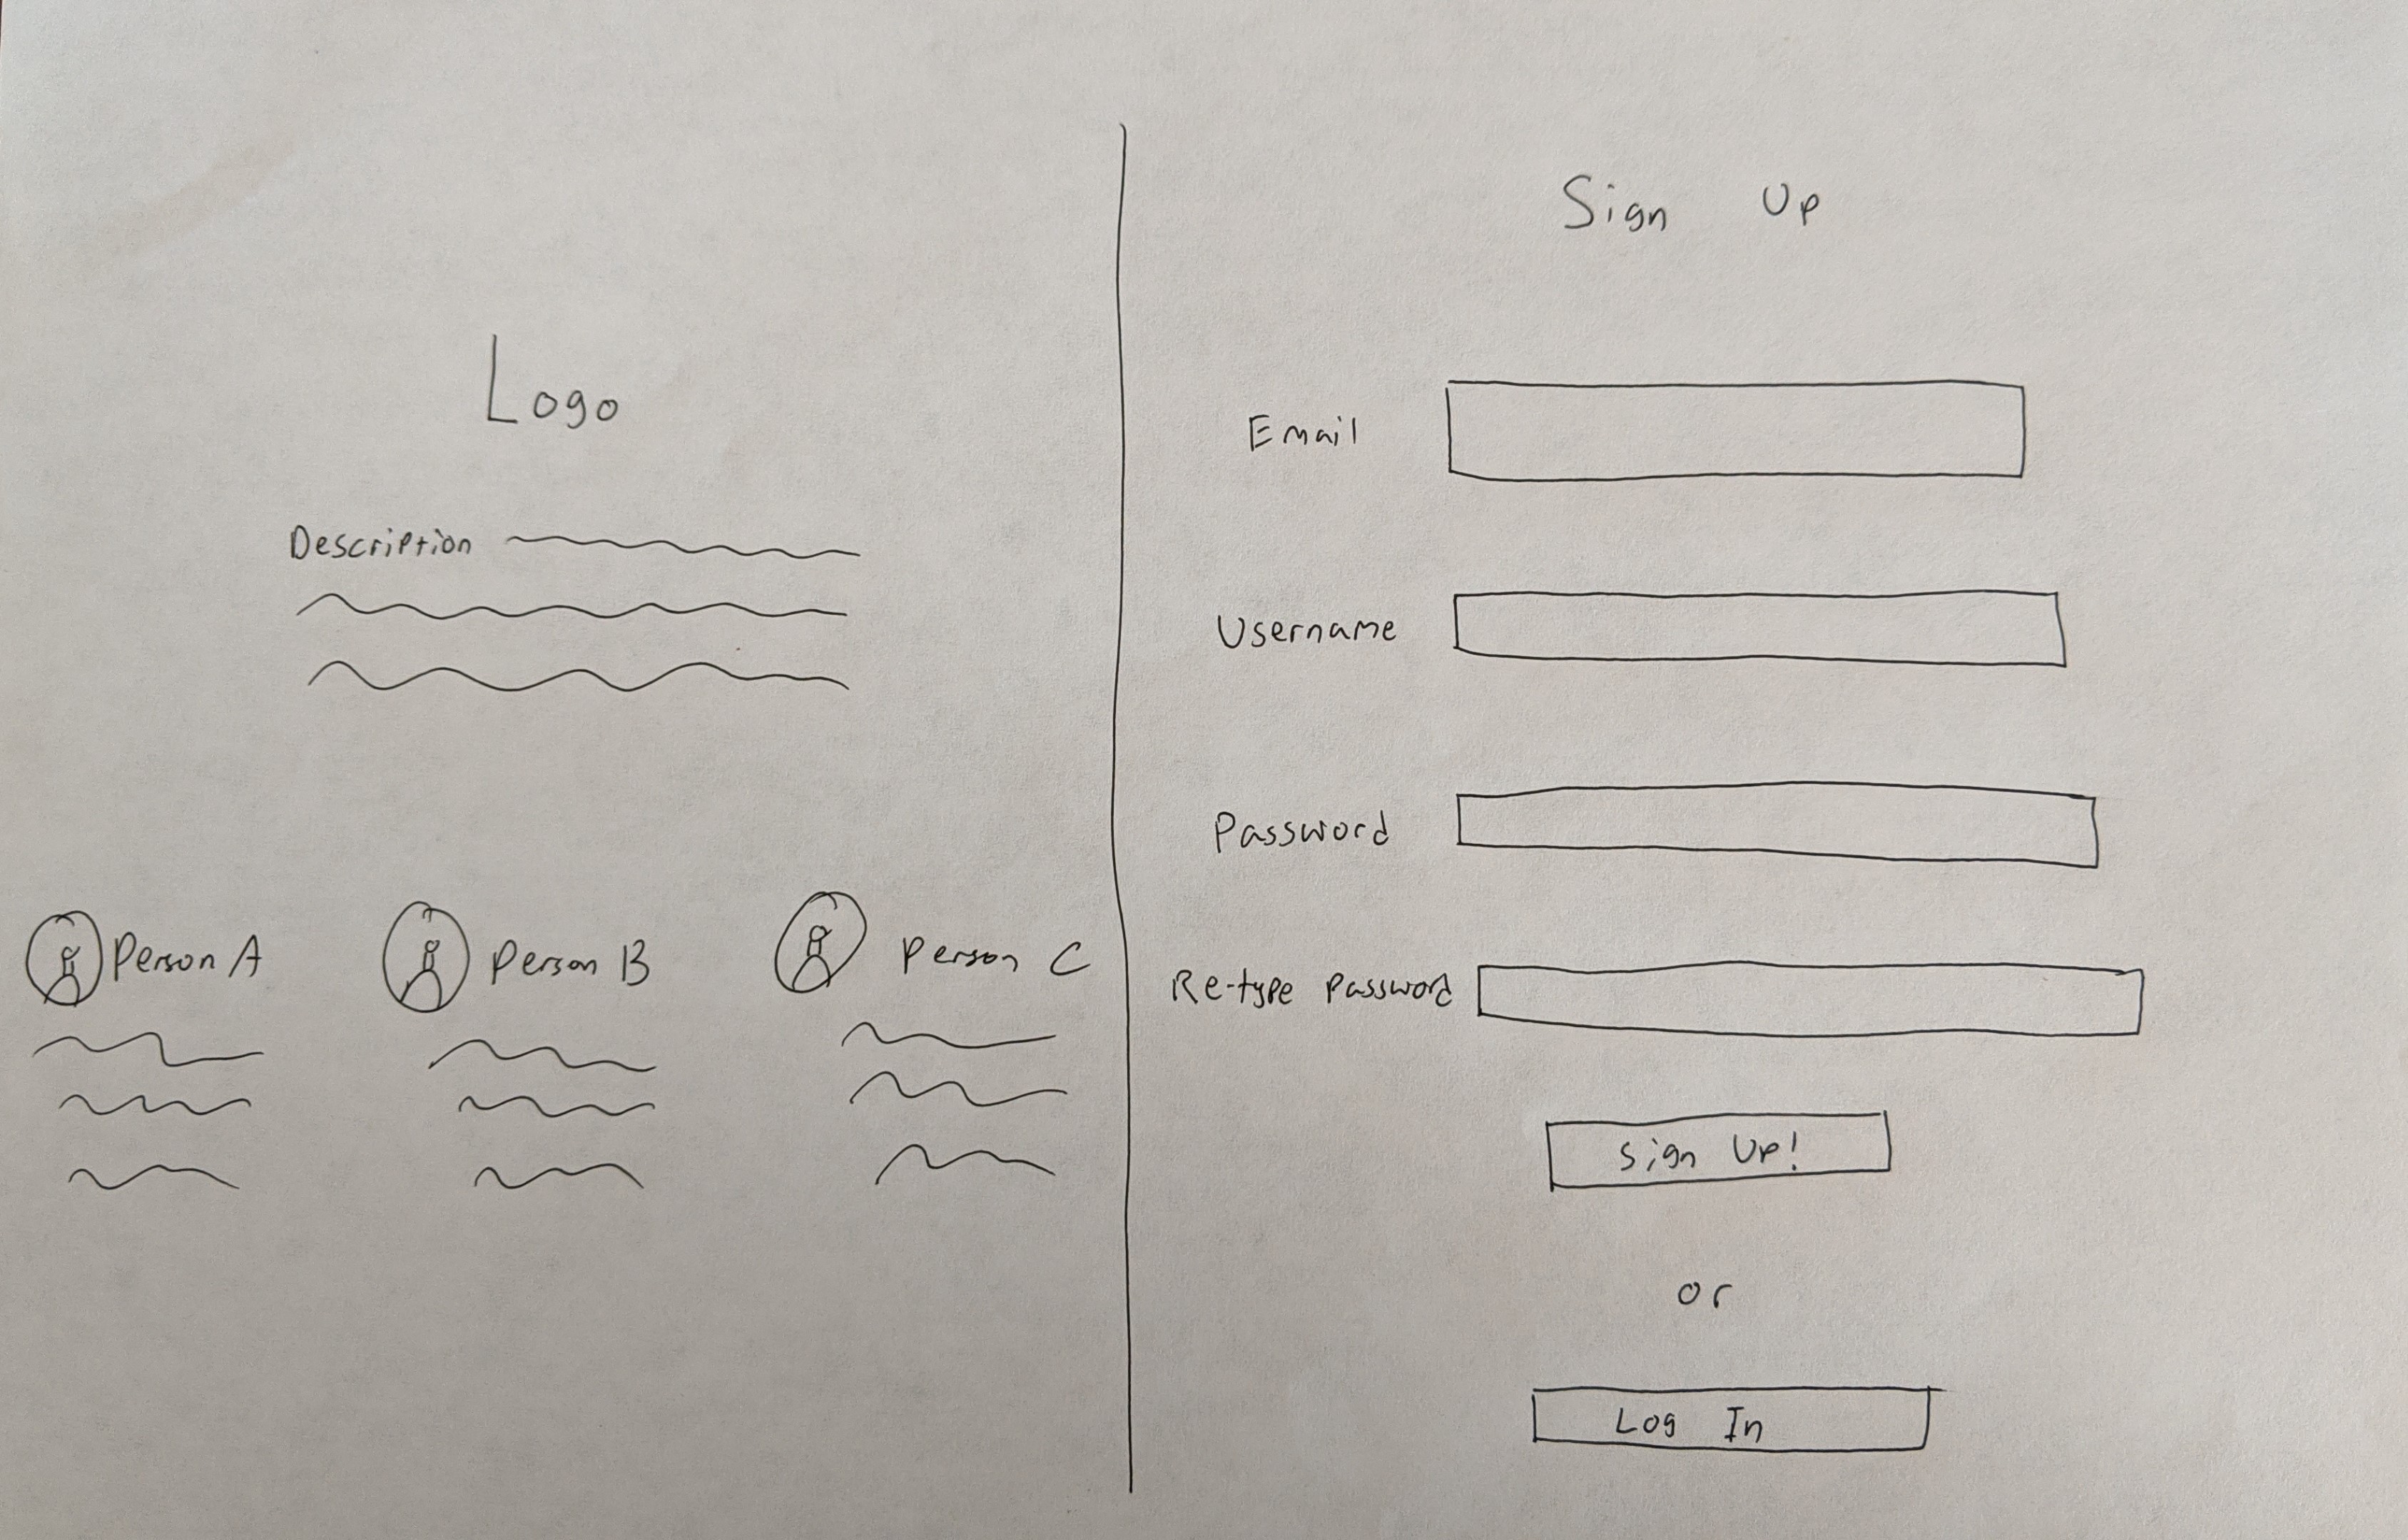 Logo
Description
Person A
Person B
Person C
Sign Up
Email
Username
Password
Re-type Password
Sign Up!
or
Log In